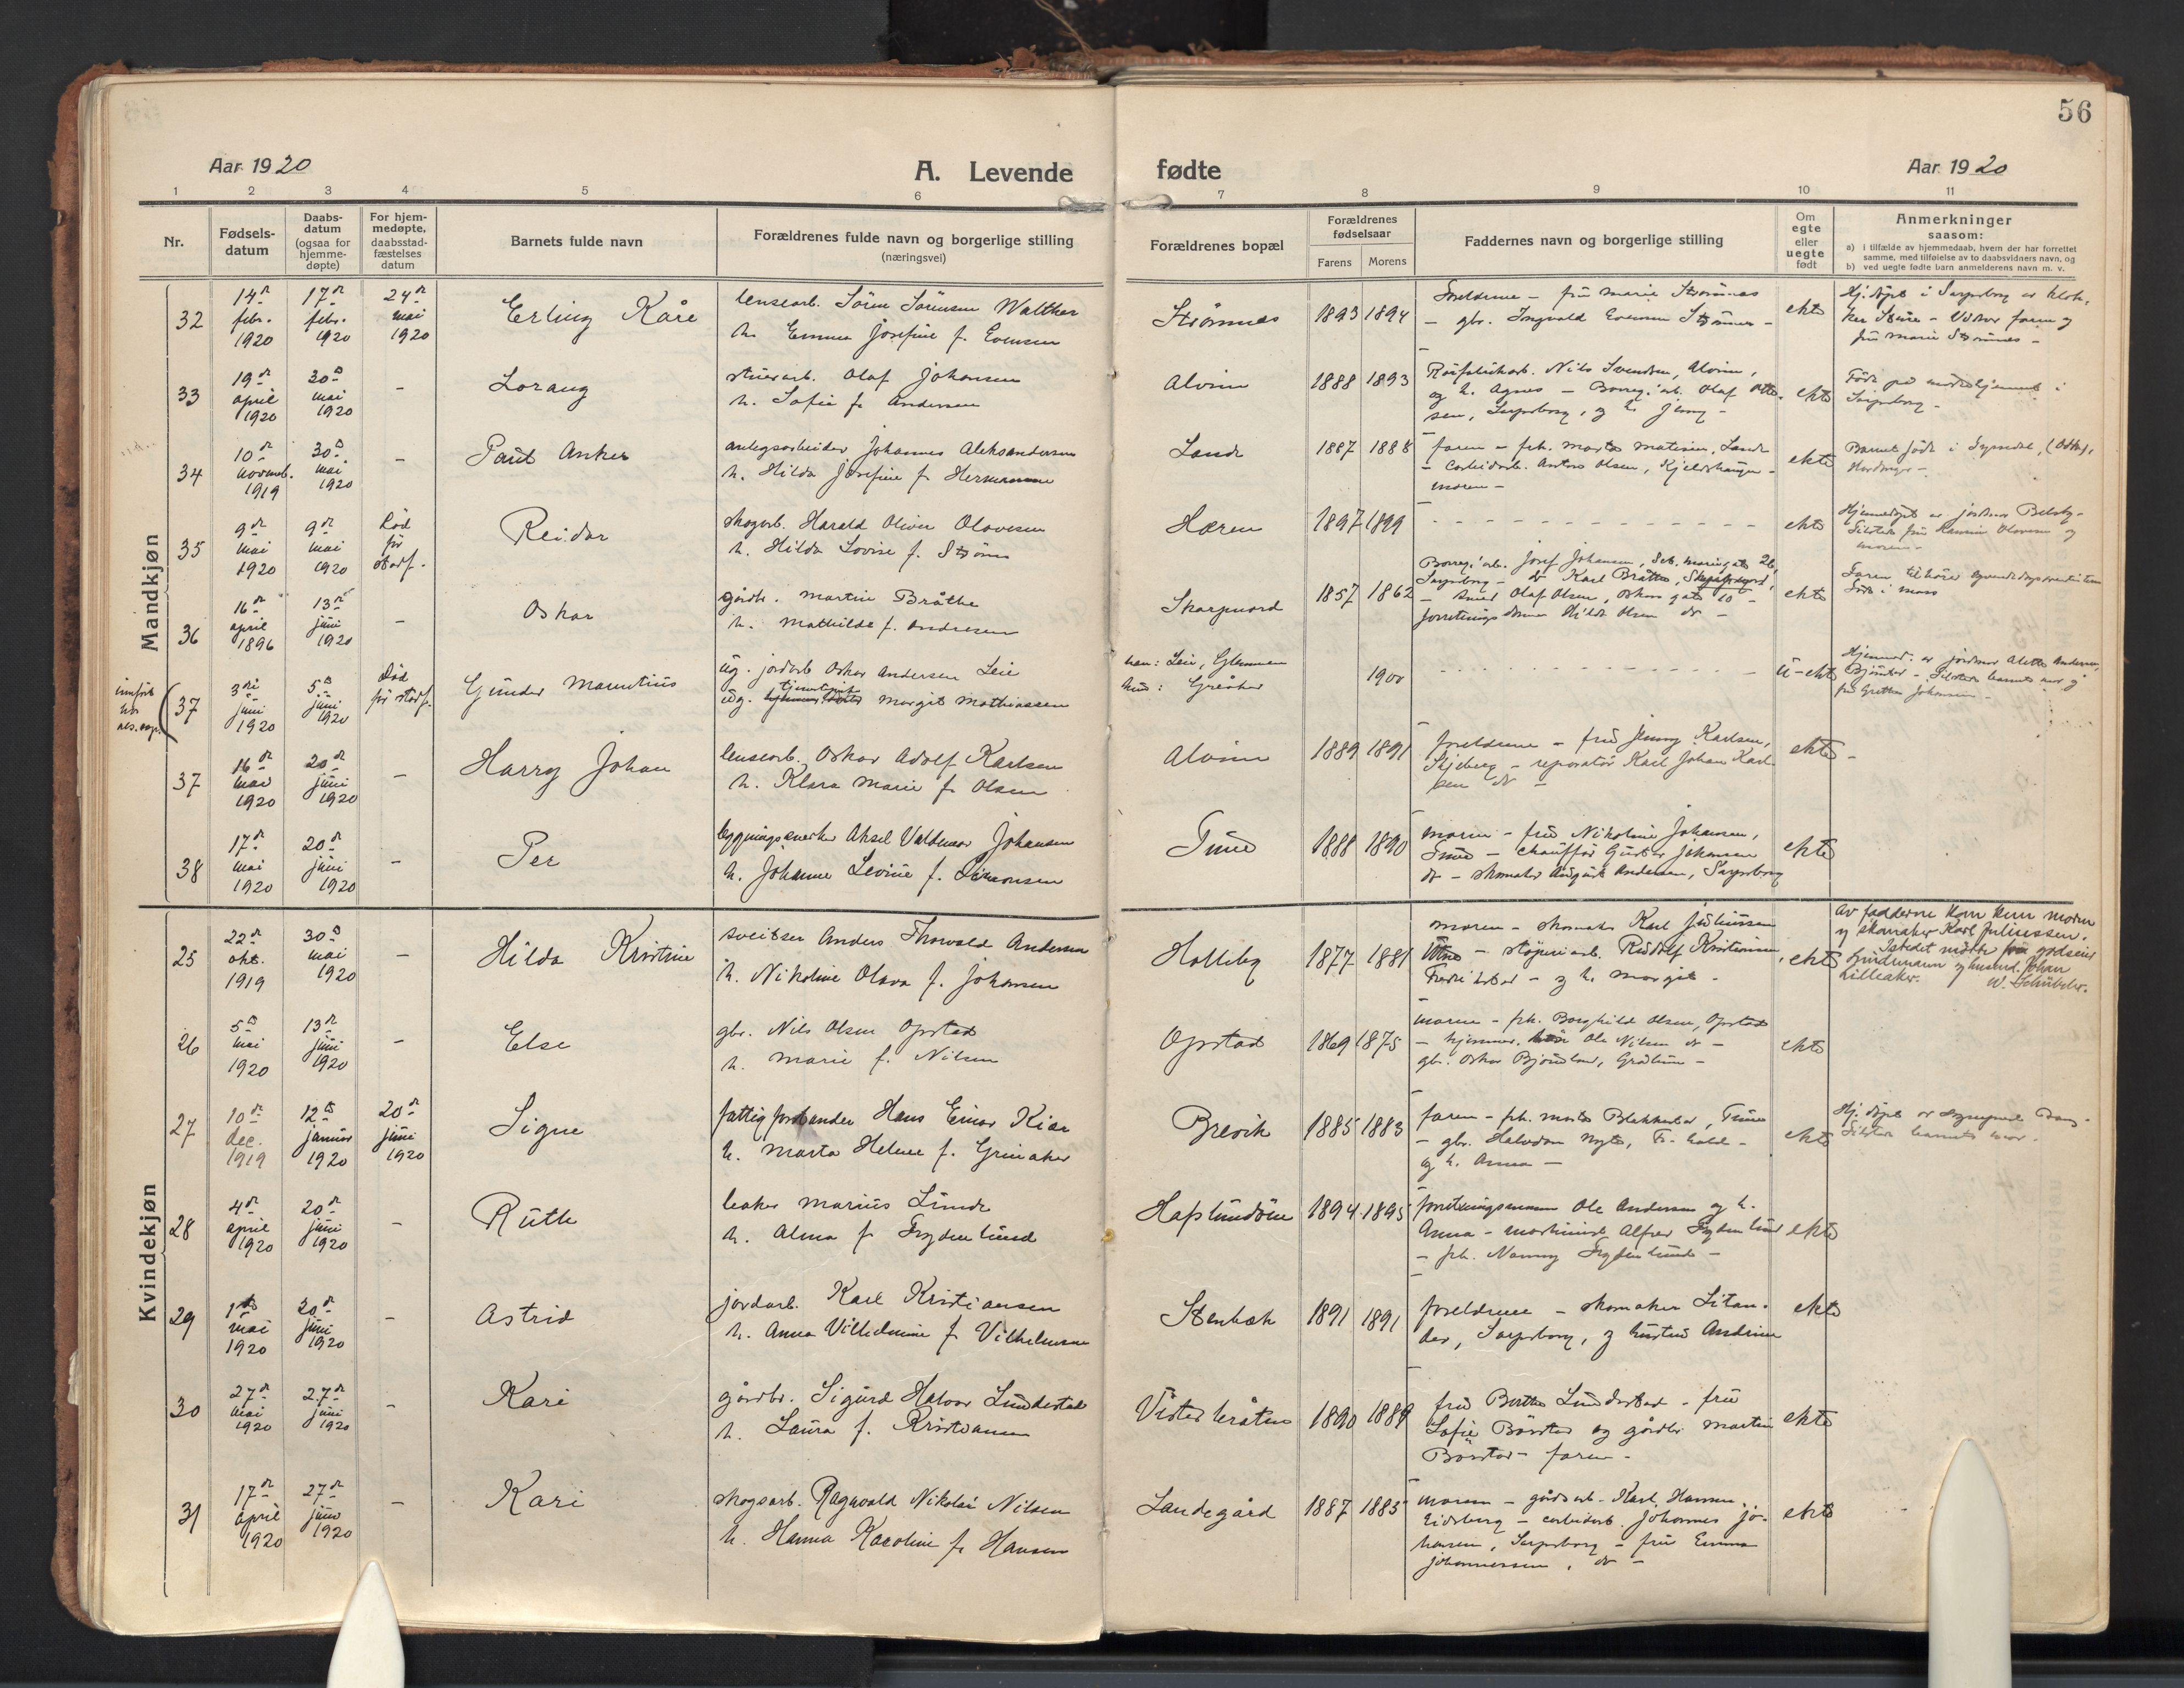 56
Aar 1920
A. Levende
fødte
Aar 1920
1 2 3 4 5 6 7 8 9 10 11
Nr.
Fødsels-
datum
Daabs-
datum
(ogsaa for
hjemme-
døpte)
For hjem-
medøpte,
daabsstad-
fæstelses
datum
Barnets fulde navn
Forældrenes fulde navn og borgerlige stilling
(næringsvei)
Forældrenes bopæl
Forældrenes
fødselsaar
Farens Morens
Faddernes navn og borgerlige stilling
Om
egte
eller
uegte
født
Anmerkninger
saasom:
a) i tilfælde av hjemmedaab, hvem der har forrettet
samme, med tilføielse av to daabsvidners navn, og
b) ved uegte fødte barn anmelderens navn m. v.
Mandkjøn
32
14de
febr.
1920
17de
febr.
1920
24de
mai
1920
Erling Kåre
lensearb. Sören Sörensen Walther
h. Emma Josefine f. Evensen
Strømnes
1893 1894
Foreldrene – frü Marie Strømnes
– gbr. Ingvald Evensen Strømnes –
ekte
Hj. døpt i Sarpsborg av klok-
ker Steire – Vidner faren og
frü Marie Strømnes –
33
19de
april
1920
30te
mai
1920
–
Lorang
Olaf Johansen
h. Sofie f. Andersen
Alvim
1888 1893
Nils Svendsen, Alvim,
og h. Agnes – Borreg.arb. Olaf Otto-
sen, Sarpsborg, og h. Jenny –
ekte
Født på mødrehjemmet i
Sarpsborg –
34
10de
novemb.
1919
30te
mai
1920
–
Paul Anker
anlegsarbeider Johannes Aleksandersen
h. Hilda Josefine f. Hermansen
Lande
1887 1888
faren – frk. Marta Matisen, Lande
– Anton Olsen, Kjeldshaugen –
moren –
ekte
Barnet født i Tyssedal, (Odda),
Hardanger –
35
9de
mai
1920
9de
mai
1920
død
før
stadf.
Reidar
skogarb. Harald Oliver Olavesen
h. Hilda Lovise f. Strøm
Hæren
1897 1899
– – – – – – – – – – – –
ekte
Hjemmedøpt av jordmor
Tilstede frü Olavesen og
moren –
36
16de
april
1896
13de
jüni
1920
–
Oskar
gårdbr. Martin Bråthe
h. Mathilde f. Andresen
Skarpnord
1857 1862
Borreg.arb. Josef Johansen, St. Mariegate 26,
Sarpsborg – do Karl Bråthe,
– Olaf Olsen, Oskars gate 10 –
forretningsdame Hilda Olsen do –
ekte
Faren tilhører
Født i Moss
innført
hos
37
3die
jüni
1920
5te
jüni
1920
Død
før stadf.
Günder Mauritiüs
üg. jordarb. Oskar Andersen Leie
tjenestepike
üg. Margit Mathiassen
han: Leie, Glemmen
hün: Greåker
1900
– – – – – – – – – –
ü-ekte
Hjemmed: av jordmor Alette Andersen,
– Tilstede barnets mor og
frü Grethe Johansen –
37
16de
mai
1920
20de
jüni
1920
–
Harry Johan
lensearb. Oskar Adolf Karlsen
h. Klara Marie f. Olsen
Alvim
1889 1891
foreldrene – frü Jenny Karlsen,
Skjeberg – reparatør Karl Johan Karl-
sen do –
ekte –
38
17de
mai
1920
20de
jüni
1920
–
Per
bygningssnekker Aksel Valdemar Johansen
h. Johanne Levine f. Simonsen
Tune
1888 1890
moren – frü Nikoline Johansen,
Tüne – chauffør Gustav Johansen
do – skomaker August Andersen, Sarpsborg
ekte
Kvindekjøn
25
22de
okt.
1919
30te
mai
1920
–
Hilda Kristine
sveitser Anders Thorvald Andersen
h. Nikoline Olava f. Johansen
Holleby
1877 1881
moren – skomaker Karl Juliussen
– støperiarb. Rüdolf Kristiansen,
Fredrikstad – og h. Margit –
ekte
Av fadderne kom kun moren
og skomaker Karl Juliussen.
Istedet møtte frü godseier
Gründmann og husmd. Johan
Lilleaker. W. Schübeler.
26
5te
mai
1920
13de
jüni
1920
–
Else
gbr. Nils Olsen Opstad
h. Marie f. Nilsen
Opstad
1869 1875
moren – frk. Borghild Olsen, Opstad
– Ole Nilsen do –
gbr. Oskar Bjørnland, Grålum –
ekte
27
10de
dec.
1919
12te
januar
1920
20de
jüni
1920
Signe
fattigforstander Hans Einar Kiær
h. Marta Helene f. Grinaker
Brevik
1885 1883
faren – frk. Marta Blakkestad, Tune
– gbr. Halvdan Nygts, Fr. hald –
og h. Anna –
ekte
Hj. døpt av sogneprest Dons –
Tilstede barnets mor –
28
4de
april
1920
20de
jüni
1920
–
Rüth
baker Mariüs Lünde
h. Alma f. Frydenlünd
Hafslundsøen
1894 1895
forretningsmann Ole Andersen og h.
Anna – maskinist Alfred Frydenlünd
– frk. Nanny Frydenlund –
ekte
29
1ste
mai
1920
20de
jüni
1920
–
Astrid
jordarb. Karl Kristiansen
h. Anna Vilhelmine f. Vilhelmsen
Stenbæk
1891 1891
foreldrene – skomaker Litan-
der, Sarpsborg, og hüstrü Andrine
ekte
30
27de
mai
1920
27de
jüni
1920
–
Kari
gårdbr. Sigürd Halvor Lündestad
h. Laüra f. Kristiansen
Visterbråten
1890 1889
frü Berthe Lündestad – frü
Sofie Børstad og gårdbr. Martin
Børstad – faren –
ekte
31
17de
april
1920
27de
jüni
1920
–
Kari
skogsarb. Ragnvald Nikolai Nilsen
h. Hanna Karoline f. Hansen
Landegård
1887 1885
moren – gårdsarb. Karl Hansen,
Eidsberg – Johannes Jo-
hansen, Sarpsborg – frü Emma
Johannessen, do –
ekte